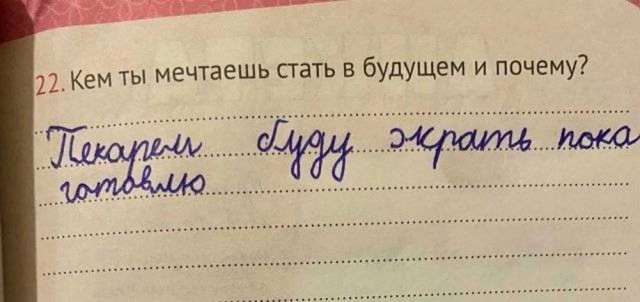 22. Кем ты мечтаешь стать в будущем и почему?
Пекарем буду жрать пока
готовлю